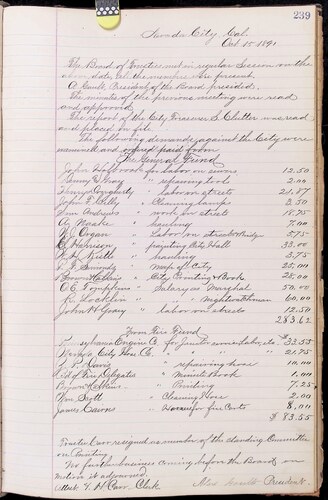 239
Nevada City Cal.
Oct 15 1891
The Board of Trustees met in regular Session on the
above date, all the members were present.
A. Gault, President of the Board presided.
The minutes of the previous meeting were read
and approved
The report of the City Treasurer S. Clutter was read
and placed on file
The following demands against the City were
examined and ordered paid from
The General Fund
John Holbrook for labor on sewer 12.50
Gray " repairing 2.00
Henry Dougherty " labor on streets 21.87
John T. " Cleaning lamps 2.50
Andrews " work on streets 18.75
A. " hauling 7.00
Organ " Labor on street & bridge 5.75
Harrison " painting City Hall 33.00
" hauling 3.75
" Map of City 25.00
Brown & Calkins " City Printing & Book 28.00
O.E. Tompkins " Salary as Marshal 50.00
Locklin " " " Nightwatchman 60.00
John H Gray " labor on streets 12.50
283.62
From Fire Fund
Pennsylvania Engine Co for Janitor 32.55
Nevada City Hose Co. " " " 21.75
Davis " repairing hose 10.00
Bd of Fire Delegates " Minute Book 1.00
Brown & Calkins " Printing 7.25
Wm. Scott " Cleaning Hose 2.00
James Cairns " for fire Carts 8.00
$ 83.55
Trustee Carr resigned as member of the Standing Committee
on Printing
No further business coming before the Board on
motion it adjourned.
Attest T. H. Carr, Clerk Alex Gault President